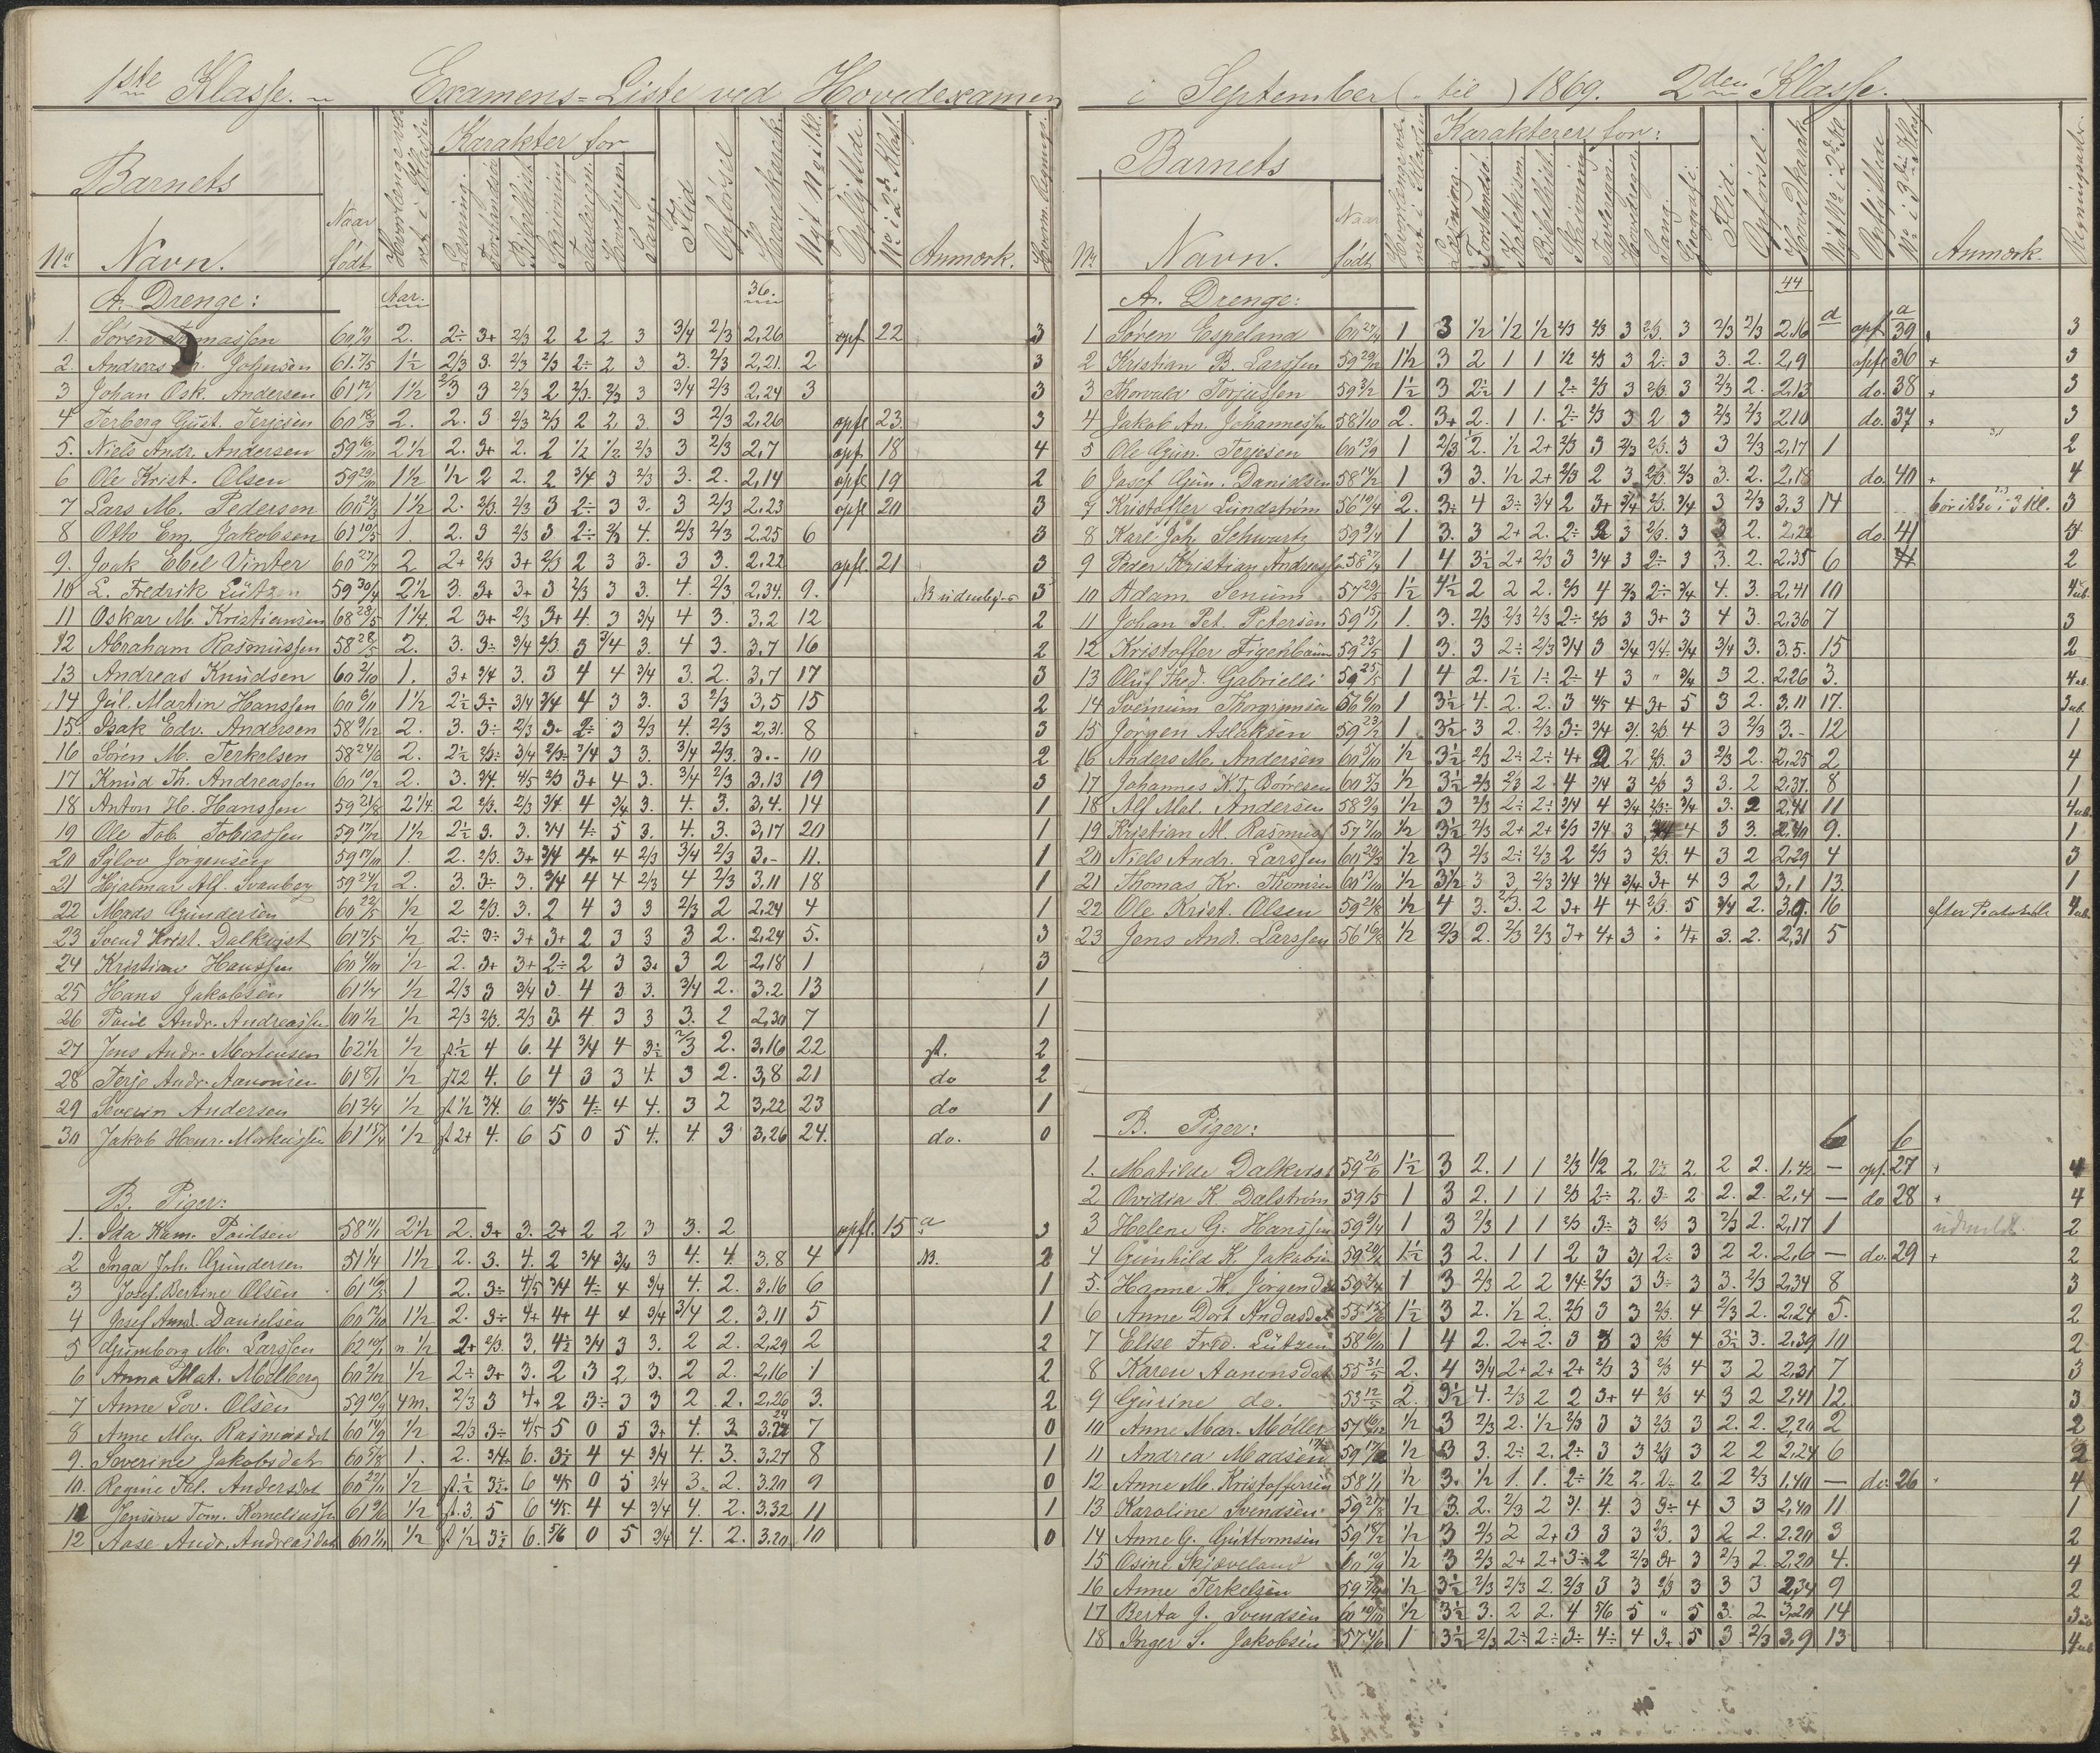 1ste Klasse. Examens-Liste ved Hovedexamen
Barnets Karakter for
No Navn. Naar født Læsning. Sang. Flid Opførsel Hovedkarakt. Anmærk.
A. Drenge: Aar. 36.
1. Søren 60 2. 2÷ 3+ 2/3 2 2 2 3 3/4 2/3 2,26 opf 22 3
2. Andreas Johnsen 61 7/5 1½ 2/3 3. 2/3 2/3 2÷ 2 3 3. 2/3 2,21. 2 3
3 Johan Osk. Andersen 61 12/1 1½ 2/3 3 2/3 2 2/3. 2/3 3 3/4 2/3 2,24 3 3
4 Terberg Gust. Terjesen 60 18/3 2. 2. 3 2/3 2/3 2 2 3. 3 2/3 2,26 opfl 23 3
5. Niels Andr. Andersen 59 16/10 2½ 2. 3+ 2. 2 ½ ½ 2/3 3 2/3 2,7 opf. 18 4
6 Ole Krist. Olsen 59 29/10 1½ ½ 2 2. 2 3/4 3 2/3 3. 2. 2,14 opfl 19 2
7 Lars M. Pedersen 60 24/3 1½ 2. 2/3. 2/3 3 2÷ 3 3. 3 2/3 2,23 opfl 20 3
8 Otto Em. Jakobsen 61 10/5 1. 2. 3 2/3 3 2÷ 2/3 4. 2/3 2/3 2,25 6 3
9. Joak Ebel Vinter 60 2 2+ 2/3 3+ 2/3 2 3 3. 3 3. 2,22 opfl. 21 3
10 L. Fredrik Lützen 59 30/4 2½ 3. 3+ 3+ 3 2/3 3 3. 4. 2/3 2,34. 9. 3
11 Oskar M. Kristiansen 68 28/5 1¼. 2 3+ 2/3 3+ 4. 3 3/4 4 3. 3,2 12 2
12 Abraham Rasmussen 58 28/5 2. 3. 3÷ 3/4 2/3. 3 3/4 3. 4 3. 3,7 16 2
13 Andreas Knudsen 60 2/10 1. 3+ 3/4 3. 3 4 4 3/4 3. 2. 3,7 17 3
14 Jul. Martin Hanssen 60 6/11 1½ 2½ 3÷ 3/4 3/4 4 3 3. 3 2/3 3,5 15 2
15. Isak Edv. Andersen 58 9/12 2. 3. 3÷ 2/3 3. 2÷ 3 2/3 4. 2/3 2,31. 8 3
16 Søren M. Terkelsen 58 24/6 2. 2½ 2/3÷ 3/4 2/3÷ 3/4 3 3. 3/4 2/3. 3.- 10 2
17 Knud Th. Andreassen 60 10/2 2. 3. 3/4. 4/5 2/3 3+ 4 3. 3/4 2/3 3,13 19 3
18 Anton H. Hanssen 59 21/8 2¼. 2 2/3. 2/3 3/4. 4 3/4 3. 4. 3. 3,4. 14 1
19 Ole Tob. Tobiassen 59 17/12 1½ 2½ 3. 3. 3/4 4÷ 5 3. 4. 3. 3,17 20 1
20 Jørgensen 59 17/10 1. 2. 2/3. 3+ 3/4 4+ 4 2/3 3/4 2/3 3.- 11. 1
21 Hjalmar Alf. Svanberg 59 24/2 2. 3. 3÷ 3. 3/4 4 4 2/3 4 2/3 3,11 18 1
22 Mads Gundersen 60 22/5 ½ 2 2/3. 3. 2 4 3 3 2/3 2 2,24 4 1
23 Svend Krist. Dalkvist 61 7/5 ½ 2÷ 3÷ 3+ 3+ 2 3 3 3 2. 2,24 5. 3
24 Kristian Hanssen 60 ½ 2. 3+ 3+ 2÷ 2 3 3. 3 2 2,18 1 3
25 Hans Jakobsen 61 1/4 ½ 2/3 3 3/4 3. 4 3 3. 3/4 2. 3.2 13 1
26 Poul Andr. Andreassen 60 1/2 ½ 2/3 2/3. 2/3 3. 4 3 3 3. 2 2,30 7 1
27 Jens Andr. Mortensen 62 1/2 ½ ½ 4 6. 4 3/4 4 3½ 2/3 2. 3,16 22 2
28 Terje Andr. Aanonsen 61 8/1 ½ 2 4. 6 4 3 3 4. 3 2. 3,8 21 do 2
29 Severin Andersen 61 2/4 ½ ½ 3/4. 6 4/5 4÷ 4 4. 3 2 3,22 23 do 1
30 Jakob Henr. Markussen 61 15/4 ½ 2+ 4. 6 5 0 5 4. 4. 3 3,26 24. do. 0
B. Piger:
1. Ida Kam. Poulsen 58 11/1 2½ 2. 3+ 3. 2+ 2 2 3 3. 2 opfl. 15 a 3
2 Inga Joh. Gundersen 51 1/4 1½ 2. 3. 4. 2 3/4 3/4 3 4. 4. 3,8 4 NB. 2
3 Josef. Bertine Olsen 61 16/5 1 2. 3÷ 4/5 3/4 4÷ 4 3/4 4. 2. 3,16 6 1
4 Josef. Danielsen 60 13/10 1½ 2. 3÷ 4+ 4+ 4 4 3/4 3/4 2. 3,11 5 1
5 Gumborg M. Larssen 62 10/1 ½ 2+ 2/3. 3. 4½ 3/4 3 3. 2 2. 2,29 2 2
6 Anna Mat. Mølberg 60 2/12 ½ 2÷ 3+ 3. 2 3 2 3. 2 2. 2,16 1 2
7 Anne Lov. Olsen 59 10/9 4m. 2/3 3 4+ 2 3÷ 3 3 2 2. 2,26 3. 2
8 Anne Meg. Rasmusdat 60 14/9 ½ 2/3 3÷ 4/5 5 0 5 3+ 4. 3 3.24 7 0
9. Severine Jakobsdat 60 5/8 1. 2. 3/4 6. 3½ 4 4 3/4 4. 3. 3,27 8 1
10. Regine Andersdat 60 22/11 ½ ½ 3÷ 6 4/5 0 5 3/4 3. 2. 3.20 9 0
11 Jensine Tom. Korneliussen 61 9/6 ½ 3. 5 6 4/5. 4 4 3/4 4. 2. 3,32 11 1
12 Aase Andr. Andreasdat 60 1/11 ½ ½ 3½ 6. 5/6 0 5 3/4 4. 2. 3.20 10 0
i September ( til ) 1869. 2den Klasse.
Barnets Karakterer for:
Nr Navn. Naar født Læsning. Forstandsø. Katekism. Bibelhist. Skrivning Tavleregn. Hovedregn. Sang. Geografi. Flid. Opførsel. Hovedkarakt. Anmærk.
A. Drenge: 44
1 Søren Espeland 60 27/4 1 3 ½ ½ ½ 2/3 2/3 3 2/3. 3 2/3 2/3 2,16 opf. 39 3
2 Kristian B. Larssen 59 29/12 1½ 3 2 1 1 ½ 2/3 3 2÷ 3 3. 2. 2,9 opfl 36 + 3
3 Thorvald Torjussen 59 3/2 1½ 3 2½ 1 1 2÷ 2/3 3 2/3. 3 2/3 2. 2,13 do. 38 + 3
4 Jakob An. Johannessen 58 1/10 2. 3+ 2. 1 1. 2÷ 2/3 3 2 3 2/3 2/3 2.10 do. 37 + 3
5 Ole Gun. Terjesen 60 13/9 1 2/3 2. ½ 2+ 2/3 3 2/3 2/3. 3 3 2/3 2,17 1 2
6 Josef Gun. Danielsen 58 14/2 1 3 3. ½ 2+ 2/3 2 3 2/3. 2/3 3. 2. 2,18 do. 40 + 4
7 Kristoffer Lundstrøm 56 19/4 2. 3÷ 4 3÷ 3/4 2 3+ 3/4 2/3. 3/4 3 2/3 3,3 14 bør ikke i 3 Kl. 3
8 Karl Joh. Schwartz 59 9/4 1 3. 3 2+ 2. 2÷ 2 3 2/3. 3 3 2. 2,22 do. 41 3
9 Peder Kristian Andersen 58 27/4 1 4 3½ 2+ 2/3 3 3/4 3 2÷ 3 3. 2. 2.35 6 2
10 Adam Senum 57 29/5 1½ 4½ 2 2 2. 2/3 4 2/3 2÷ 3/4 4. 3. 2,41 10 4ub.
11 Johan Pet. Petersen 59 15/1 1. 3. 2/3 2/3 2/3 2÷ 2/3 3 3+ 3 4 3. 2,36 7 3
12 Kristoffer Figenbaum 59 23/5 1 3. 3 2÷ 2/3 3/4 3 3/4 3/4. 3/4 3/4 3. 3.5. 15 2
13 Oluf Fred. Gabrielli 59 25/5 1 4 2. 1½ 1÷ 2÷ 4 3 " 3/4 3 2. 2,26 3. 4ub.
14 Sveinum Thorgrimsen 56 6/10 1 3½ 4. 2. 2. 3 4/5 4 3+ 5 3 2. 3,11 17. 3ub.
15 Jørgen Aslaksen 59 23/2 1 3½ 3 2. 2/3 3÷ 3/4 3. 2/3 4 3 2/3 3.- 12 1
16 Anders M. Andersen 60 5/10 ½ 3½ 2/3 2÷ 2÷ 4+ 2 2. 2/3. 3 2/3 2. 2,25 2 4
17 Johannes N.T. Børresen 60 5/3 ½ 3½ 2/3 2/3 2 4 3/4 3 2/3 3 3. 2 2,37. 8 1
18 Alf Mat. Andersen 58 9/9 ½ 3 2/3 2÷ 2÷ 3/4 4 3/4 2/3÷ 3/4 3. 2 2,41 11 4ub.
19 Kristian Al. Rasmus 57 7/10 ½ 3½ 2/3 2+ 2+ 2/3 3/4 3 3/4 4 3 3. 2,40 9. 1
20 Niels Andr. Larssen 60 29/3 ½ 3 2/3 2÷ 2/3 2 2/3 3 2/3. 4 3 2 2,29 4 3
21 Thomas Kr. Thomsen 60 13/10 ½ 3½ 3 3 2/3 3/4 3/4 3/4 3+ 4 3 2 3,1 13. 1
22 Ole Krist. Olsen 59 21/8 ½ 4 3. 2/3. 2 3+ 4 4 2/3. 5 3/4 2. 3,9. 16 4ub.
23 Jens And. Larssen 56 19/8 ½ 2/3 2. 2/3 2/3 3+ 4+ 3 4+ 3. 2. 2,31 5
B. Piger:
1. Matilde Dalkvist 59 20/6 1½ 3 2. 1 1 2/3 ½ 2. 2÷ 2. 2 2. 1,42 — opf. 27 + 4
2 Ovidia K. Dalstrøm 59 1/5 1 3 2. 1 1 2/3 2÷ 2. 3÷ 2 2. 2. 2,4 — do 28 + 4
3 Helene G. Hanssen 59 9/4 1 3 2/3 1 1 2/3 3÷ 3 2/3 3 2/3 2. 2,17 1 udmeldt. 2
4 Gunhild K. Jakobsen 59 29/2 1½ 3 2. 1 1 2 3 3, 2÷ 3 2 2. 2,6 — do. 29 + 2
5. Hanne Th. Jørgensd 59 2/4 1 3 2/3 2 2 3/4÷ 2/3 3 3÷ 3 3. 2/3 2,34 8 3
6 Anne Dort. Andersdat 55 13/6 1½ 3 2. ½ 2. 2/3 3 3 2/3. 4 2/3 2. 2,24 5. 2
7 Elise Fred. Lützen 58 9/10 1 4 2. 2+ 2. 3 3 3 2/3 4 3½ 3. 2,39 10 2
8 Karen Aanonsdat 55 31/5 2. 4 3/4 2+ 2+ 2+ 2/3 3 2/3 4 3 2 2,31 7 3
9 Gurine do. 53 12/5 2. 3½ 4. 2/3 2 2 3+ 4 2/3 4 3 2 2,41 12. 3
10 Anne Mar. Møller 57 16/12 ½ 3 2/3 2. ½ 2/3 3 3 2/3. 3 2. 2. 2,20 2 2
11 Andrea Madsen 59 17/12 ½ 3 3. 2÷ 2. 2÷ 3 3 2/3 3 2 2 2.24 6 2
12 Anne M. Kristoffersen 58 1/1 ½ 3. ½ 1. 1. 2÷ ½ 2 2÷ 2 2 2/3 1,40 — do. 26 4
13 Karoline Svendsen 59 27/8 ½ 3. 2. 2/3 2 3/. 4 3 3÷ 4 3 3 2,40 11 1
14 Anne G. Guttormsen 59 18/12 ½ 3 2/3 2 2+ 3 3 3 2/3. 3 2 2. 2.20 3 2
15 Osine Skjæveland 60 10/9 ½ 3 2/3 2+ 2+ 3÷ 2 2/3 3+ 3 2/3 2. 2,20 4. 4
16 Anne Terkelsen 59 ½ 3½ 2/3 2/3 2. 2/3 3 3 2/3 3 3 3 2,34 9 2
17 Berta J. Svendsen 60 10/10 ½ 3½ 3. 2 2. 4 5/6 5 " 5 3. 2. 3,20 14
18 Inger S. Jakobsen 57 4/6 1 3½ 2/3 2÷ 2÷ 3÷ 4÷ 4 3. 5 3 2/3 3,9 13 4ub